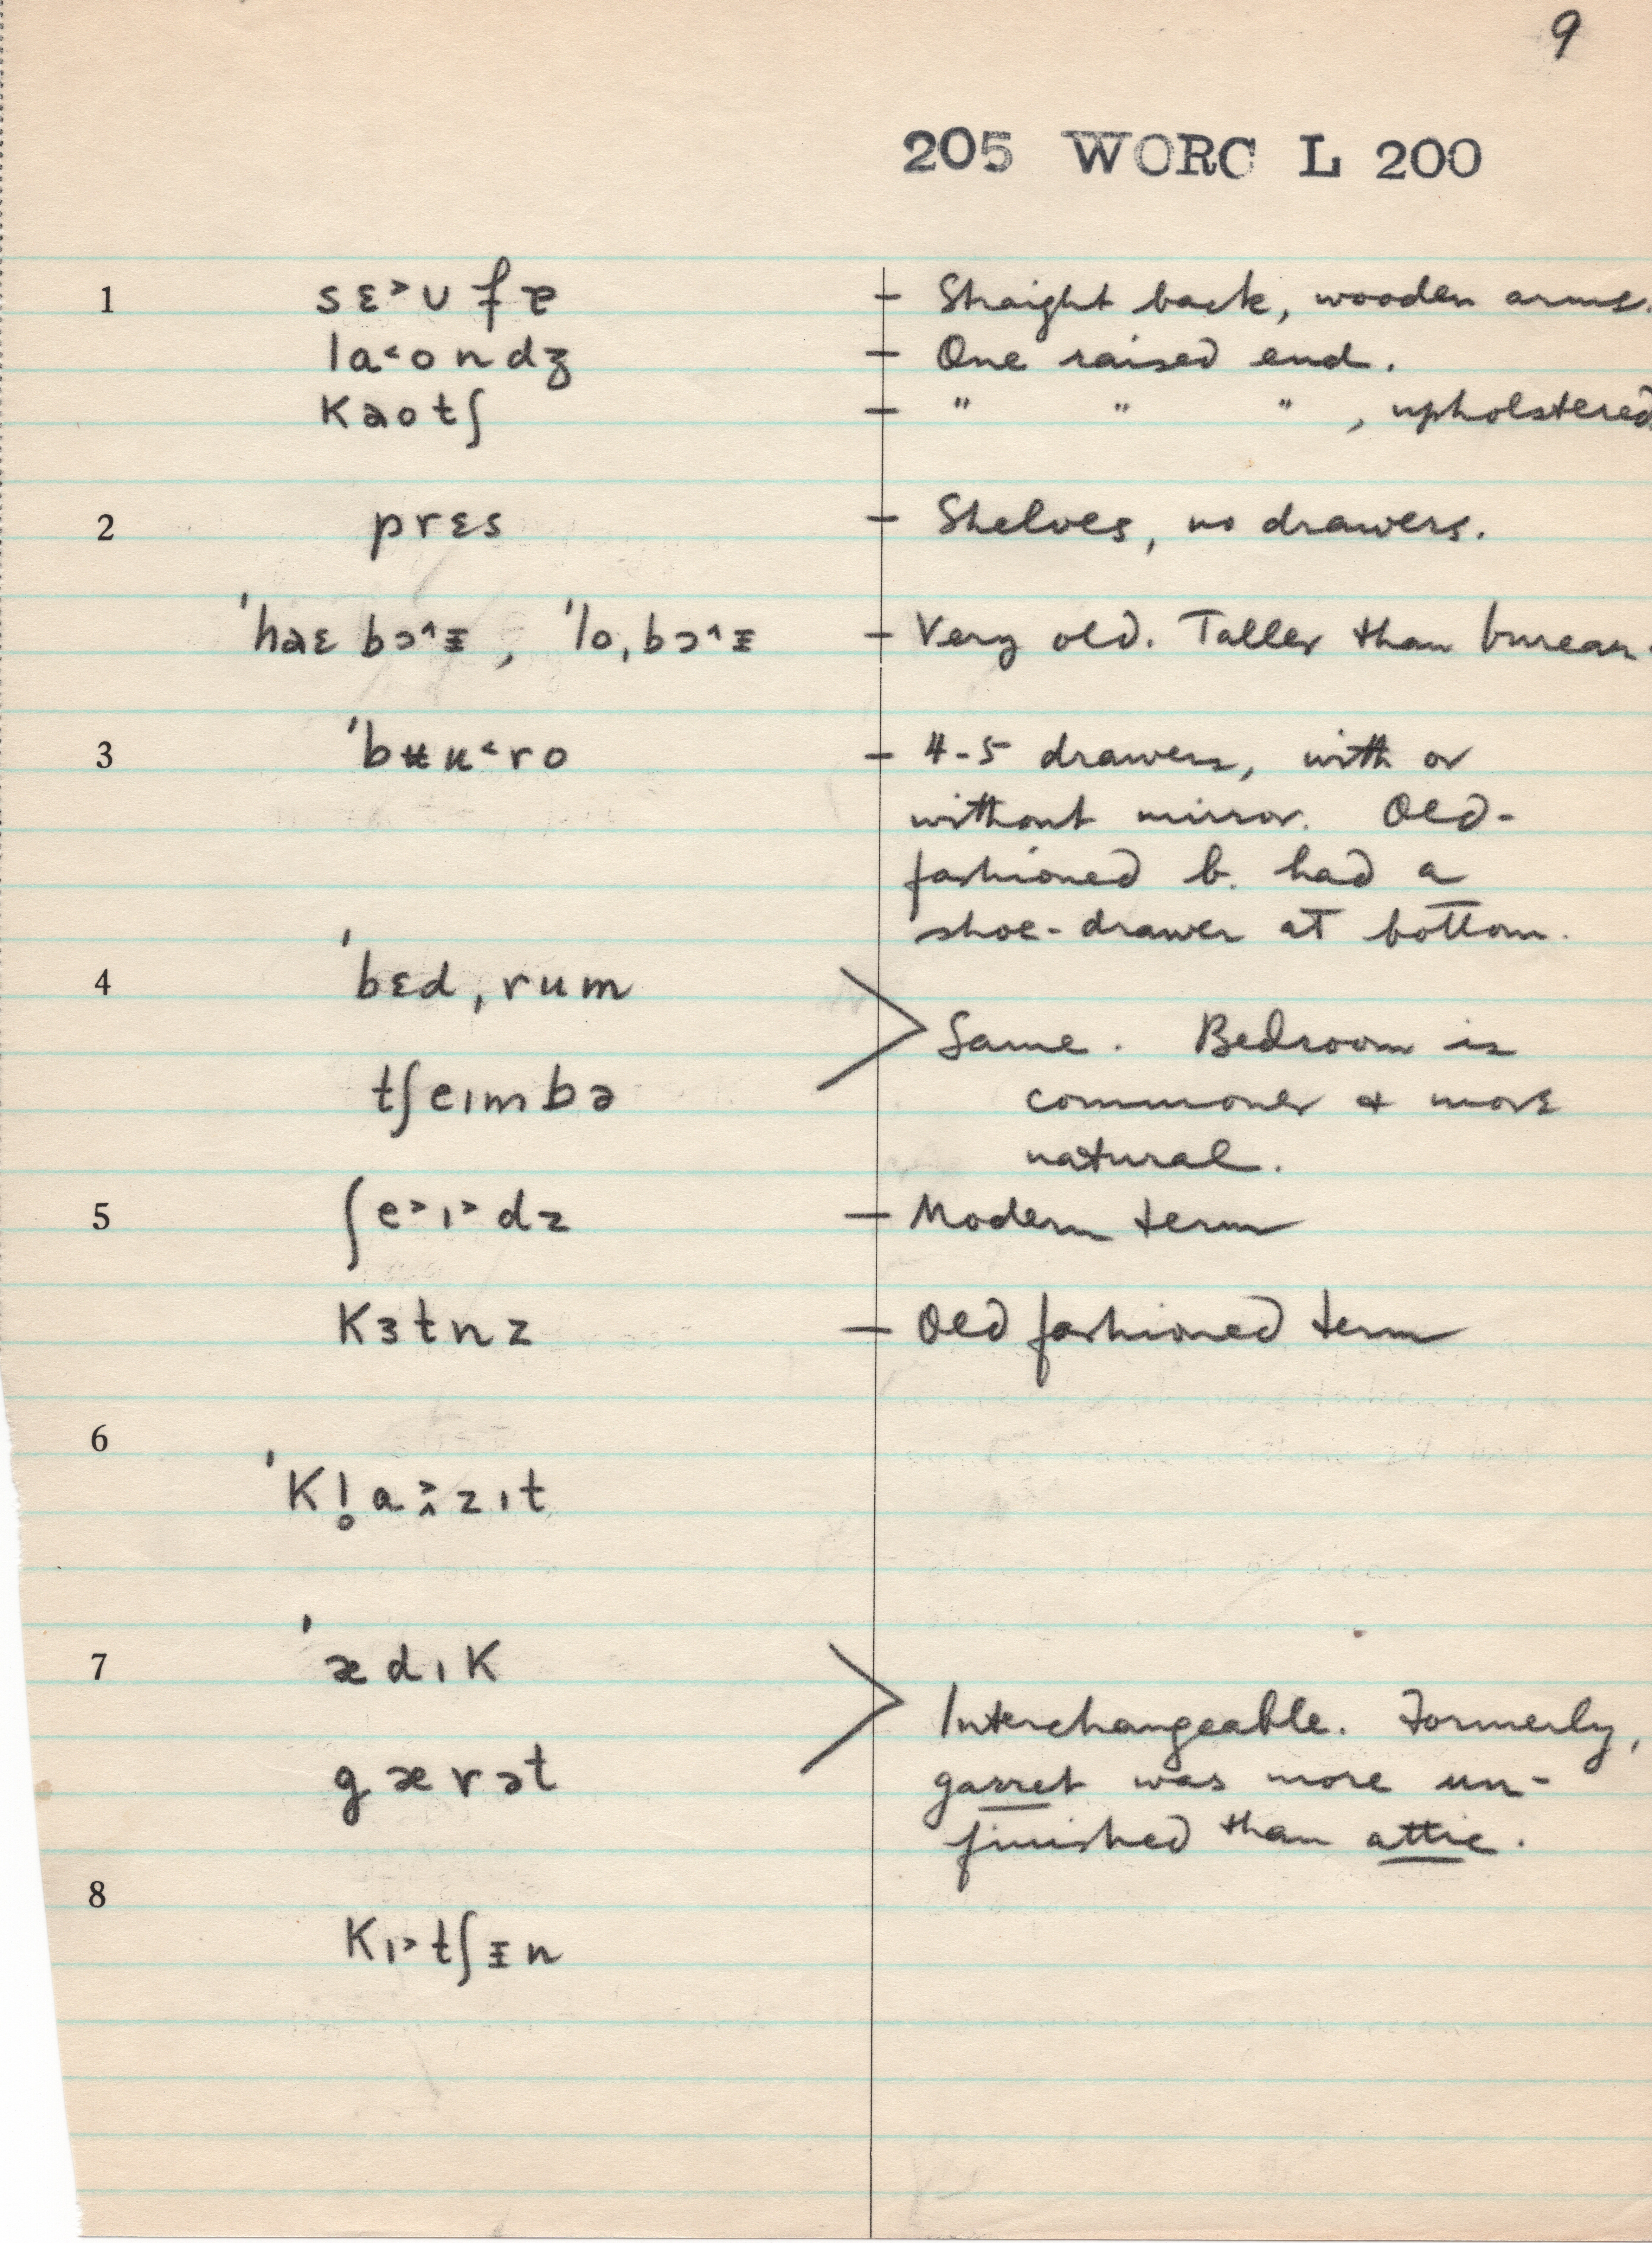 9
205 WORC L 200
1 sɛ˃ʊfɐ – Straight back, wooden arms.
la˂ondʒ – One raised end.
kəotʃ – " " " , upholstered
2 prɛs – Shelves, no drawers.
ˈhəɛ bɔ˄ɪ, ˈlo,bɔ˄ɪ – Very old. Taller than bureau.
3 ˈbʉu˂ro – 4-5 drawers, with or
without mirror. Old-
fashioned b. had a
shoe-drawer at bottom.
4 ˈbɛd,rum
Same. Bedroom is
tʃeımbə commoner & more
natural.
5 ʃe˃ı˃dz – Modern term
kɜtnz – Old fashioned term
6
ˈkl̥a˃ɪzıt
7 ˈædık
Interchangeable. Formerly,
gærət garret was more un-
finished than attic.
8
kı˃tʃɪn